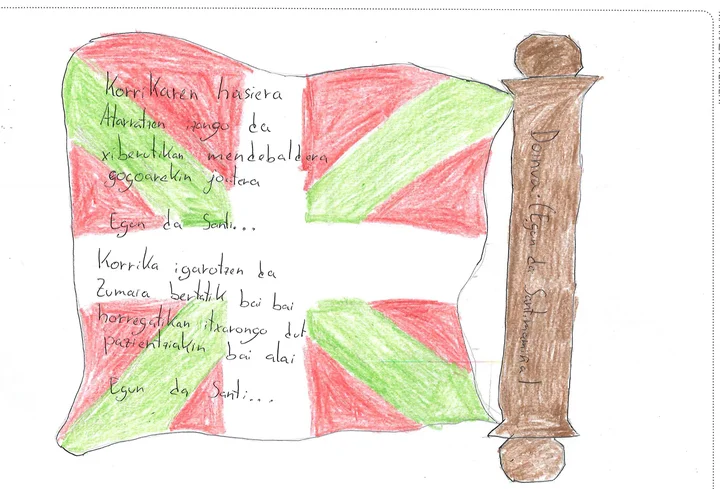 Korrikaren hasiera
Atarratzen izango da
xiberutikan mendebaldera
gogoarekin joatera
Egun da Santi...
Korrika igarotzen da
Zumaia bertatik bai bai
horregatikan itxarongo dut
pazientziakin bai alai
Egun da Santi...
Doinua: (Egun da Santimamiña)